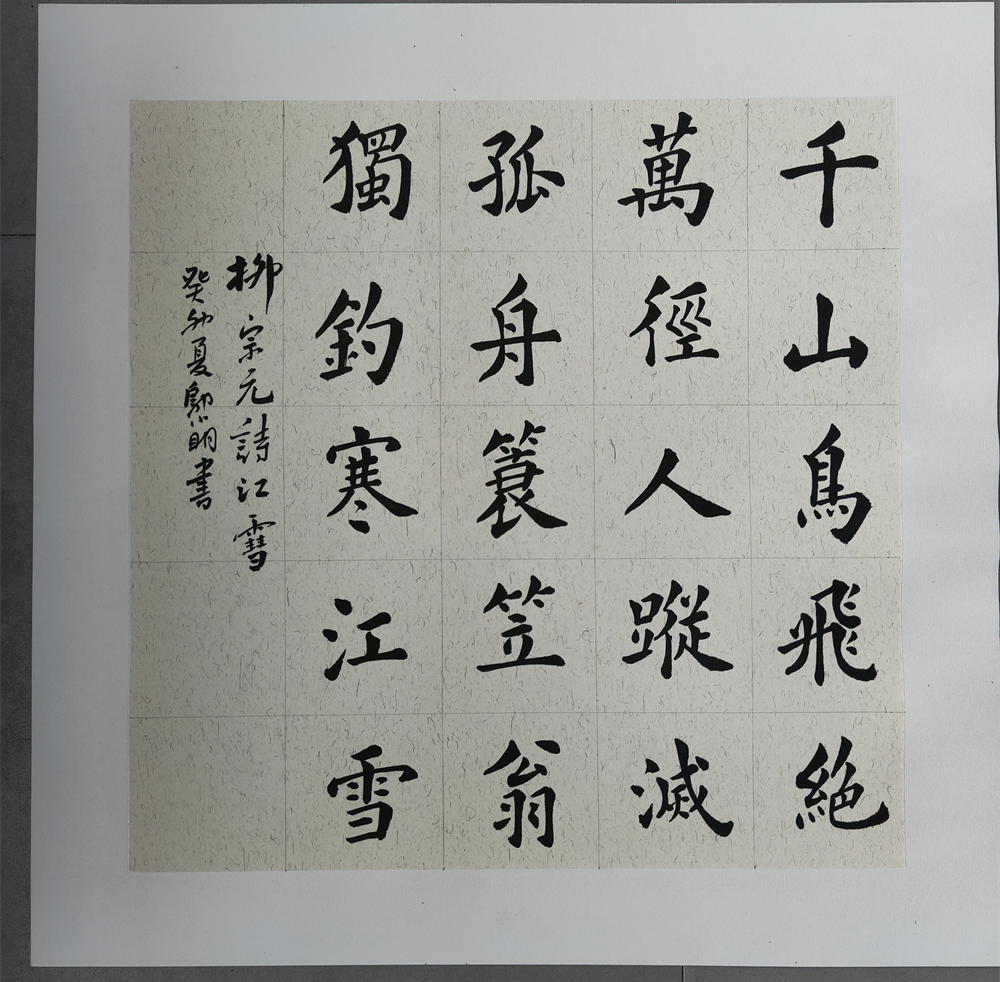 千山鳥飛絕
萬徑人蹤滅
孤舟簑笠翁
獨釣寒江雪
柳宗元詩江雪
癸卯夏鄭小明書